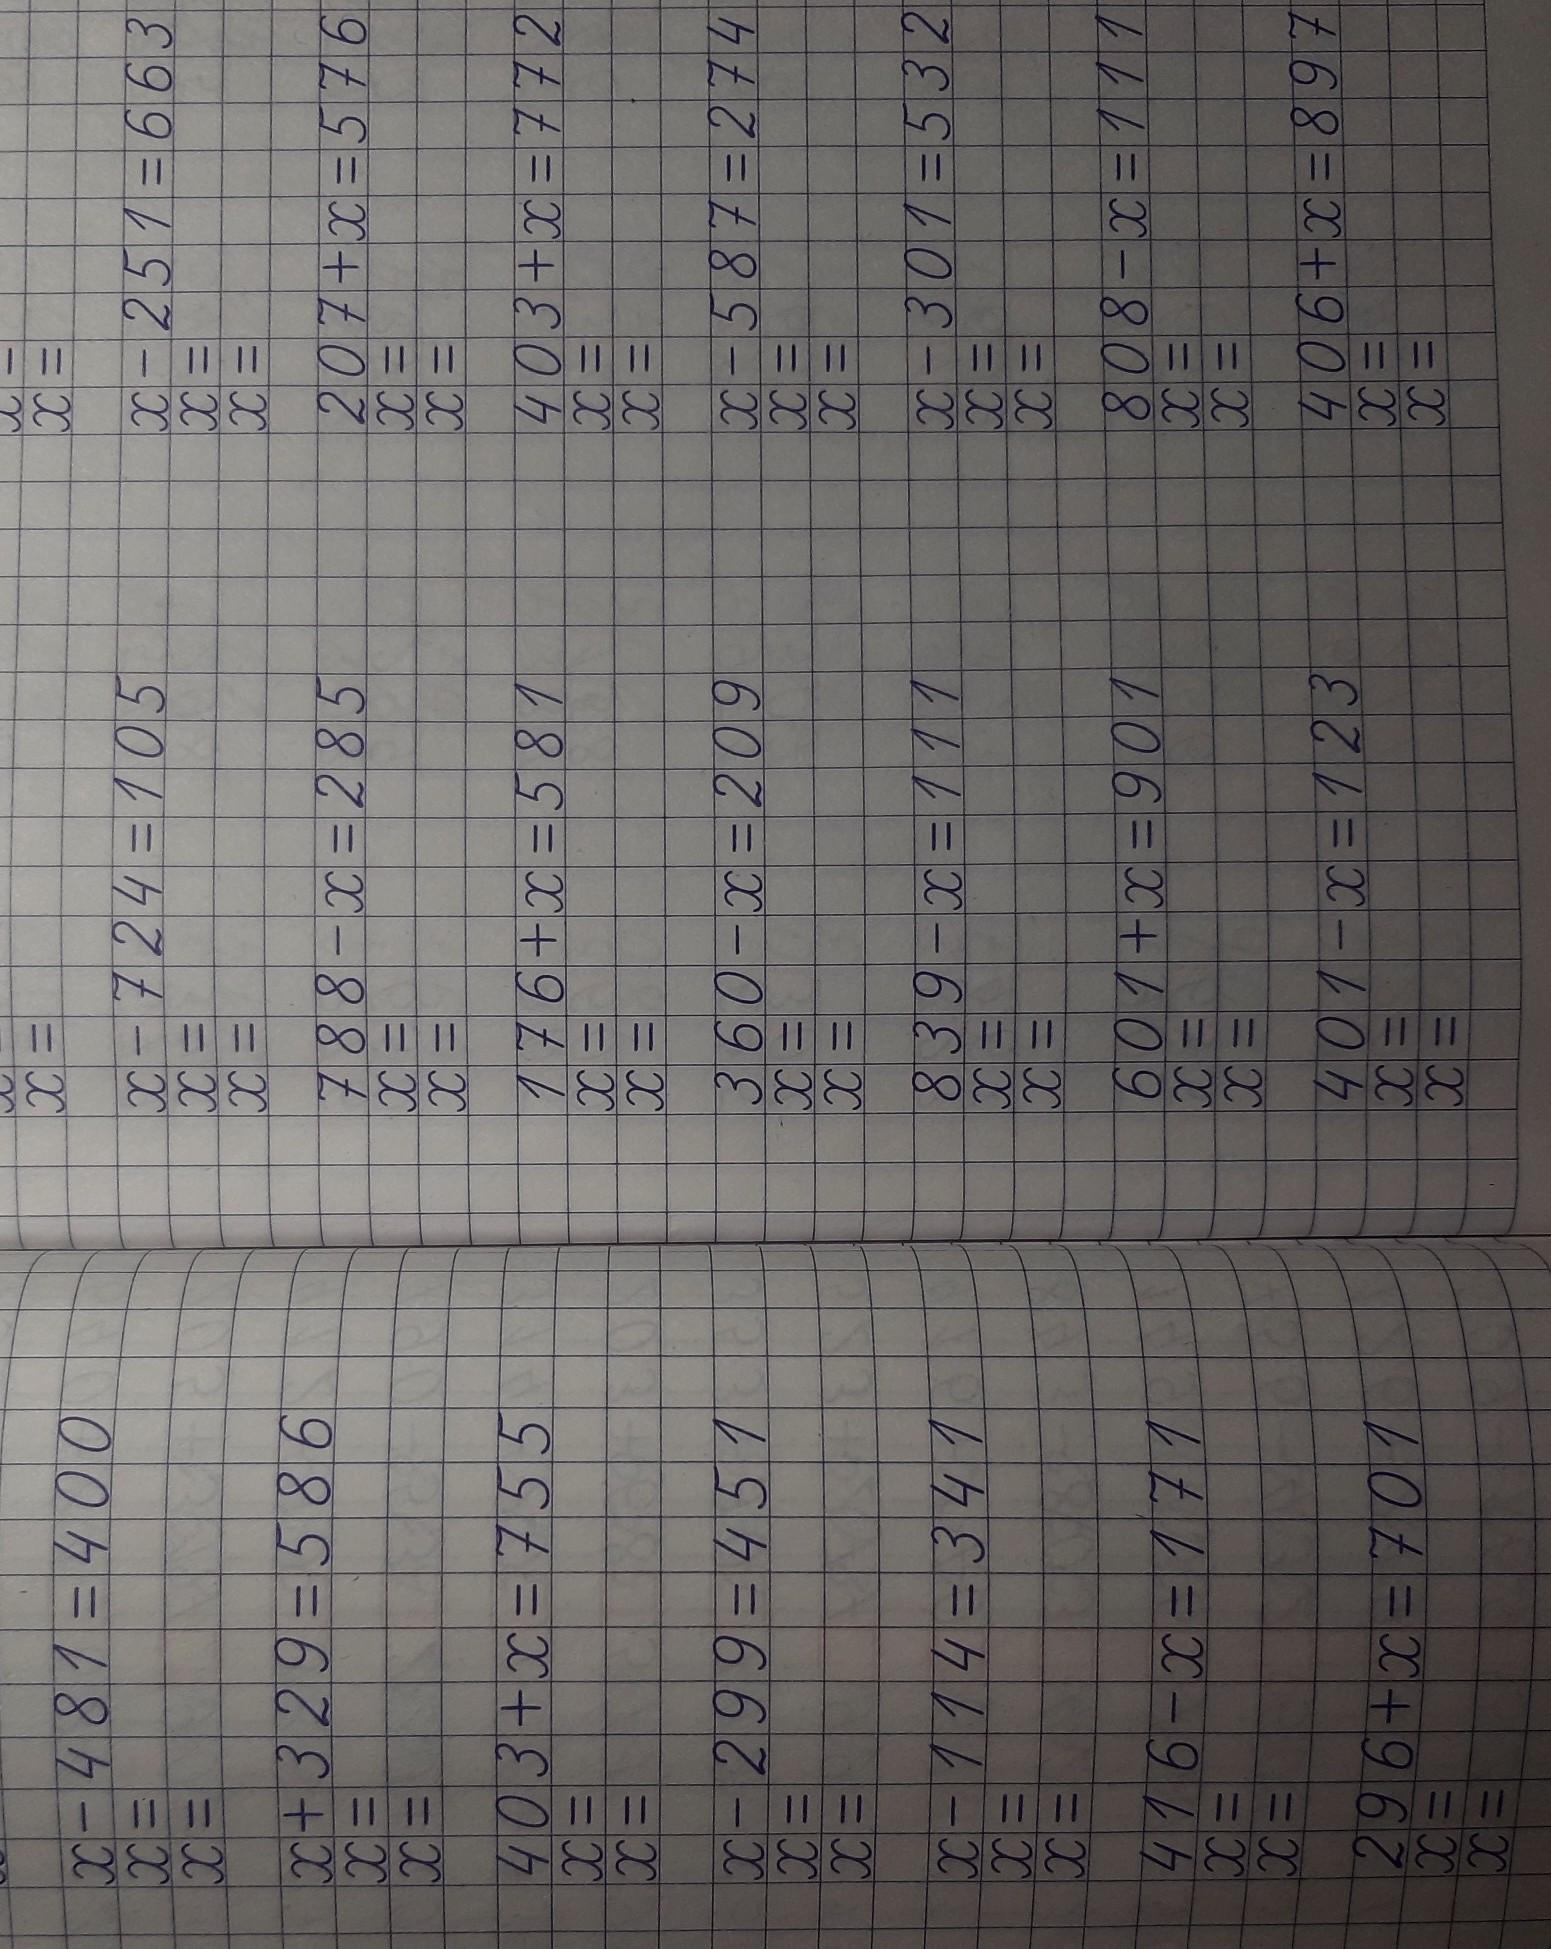 x-481=400
x=
x=
x+329=586
x=
x=
403+x=755
x=
x=
x-299=451
x=
x=
x-114=341
x=
x=
416-x=171
x=
x=
296+x=701
x=
x=
x=
x-724=105
x=
x=
788-x=285
x=
x=
176+x=581
x=
x=
360-x=209
x=
x=
839-x=111
x=
x=
601+x=901
x=
x=
401-x=123
x=
x=
x=
x-251=663
x=
x=
207+x=576
x=
x=
403+x=772
x=
x=
x-587=274
x=
x=
x-301=532
x=
x=
808-x=111
x=
x=
406+x=897
x=
x=